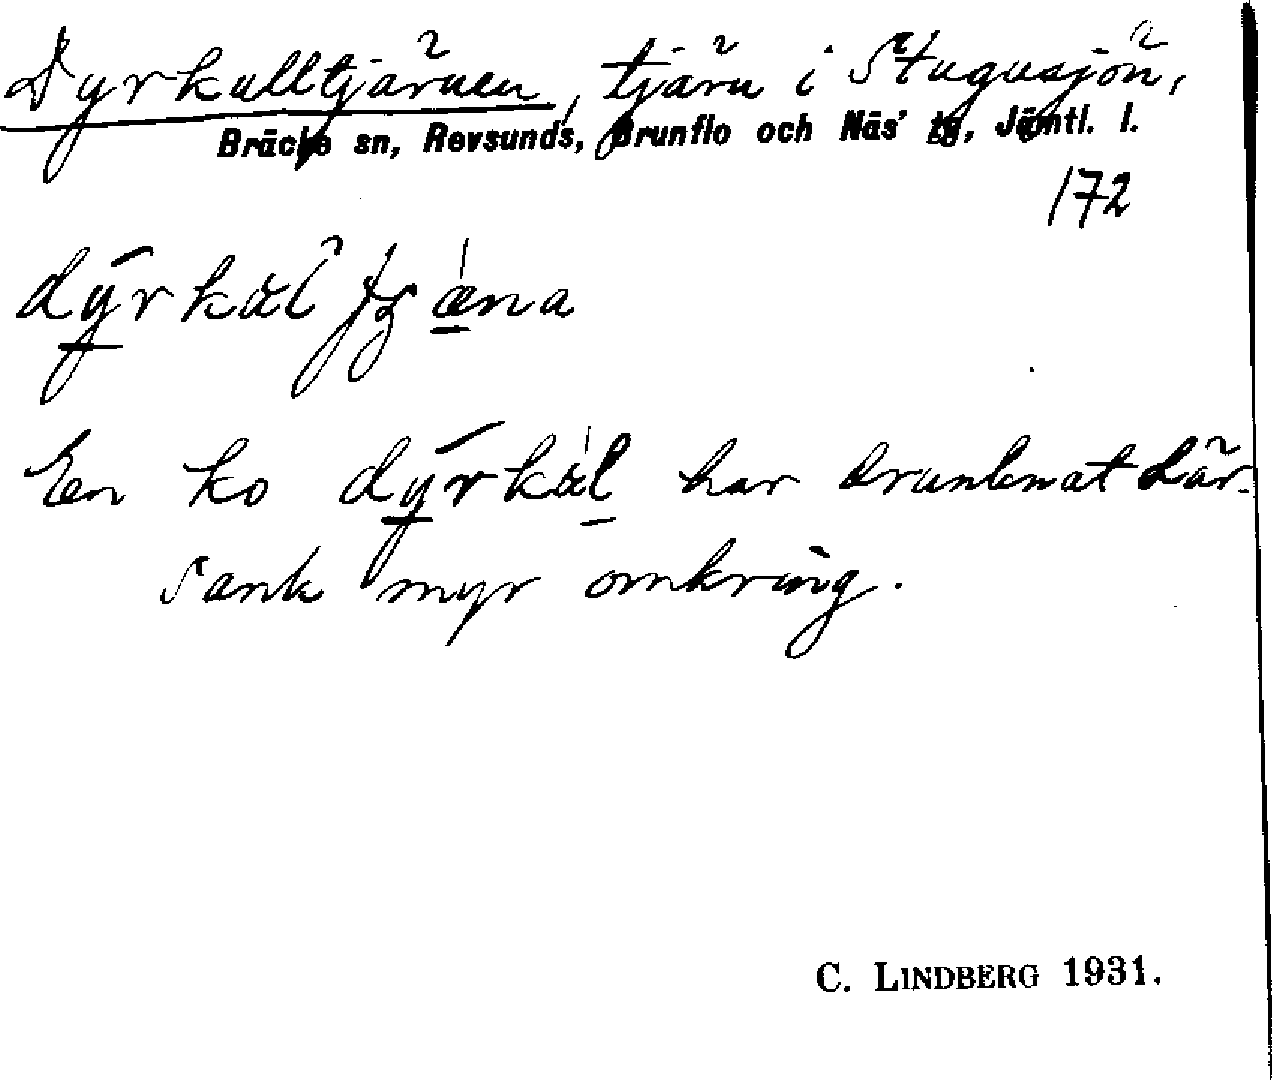 Dyrkulltjärnen, tjärn i Stugusjön,
Bräcke sn, Revsunds, Brunflo och Näs' tg, Jämtl. l.
172
En ko har drunknat där.
Sank myr omkring.
C. LINDBERG 1931.